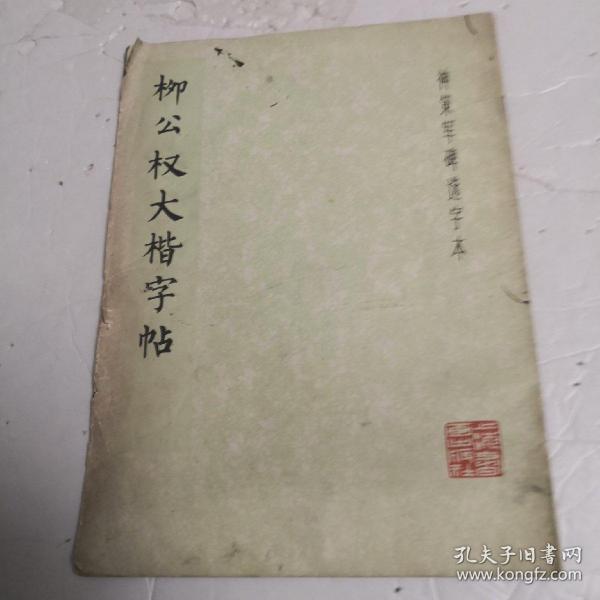 柳公权大楷字帖
神策军碑选字本
上海书画出版社
孔夫子旧书网
www.kongfz.com